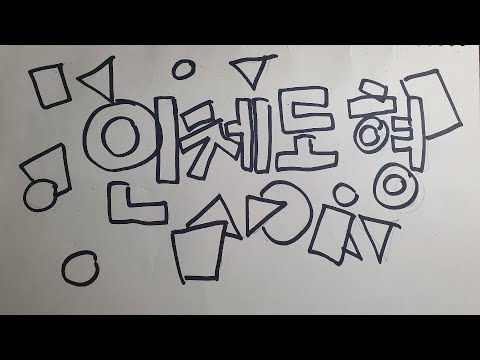 인체도형